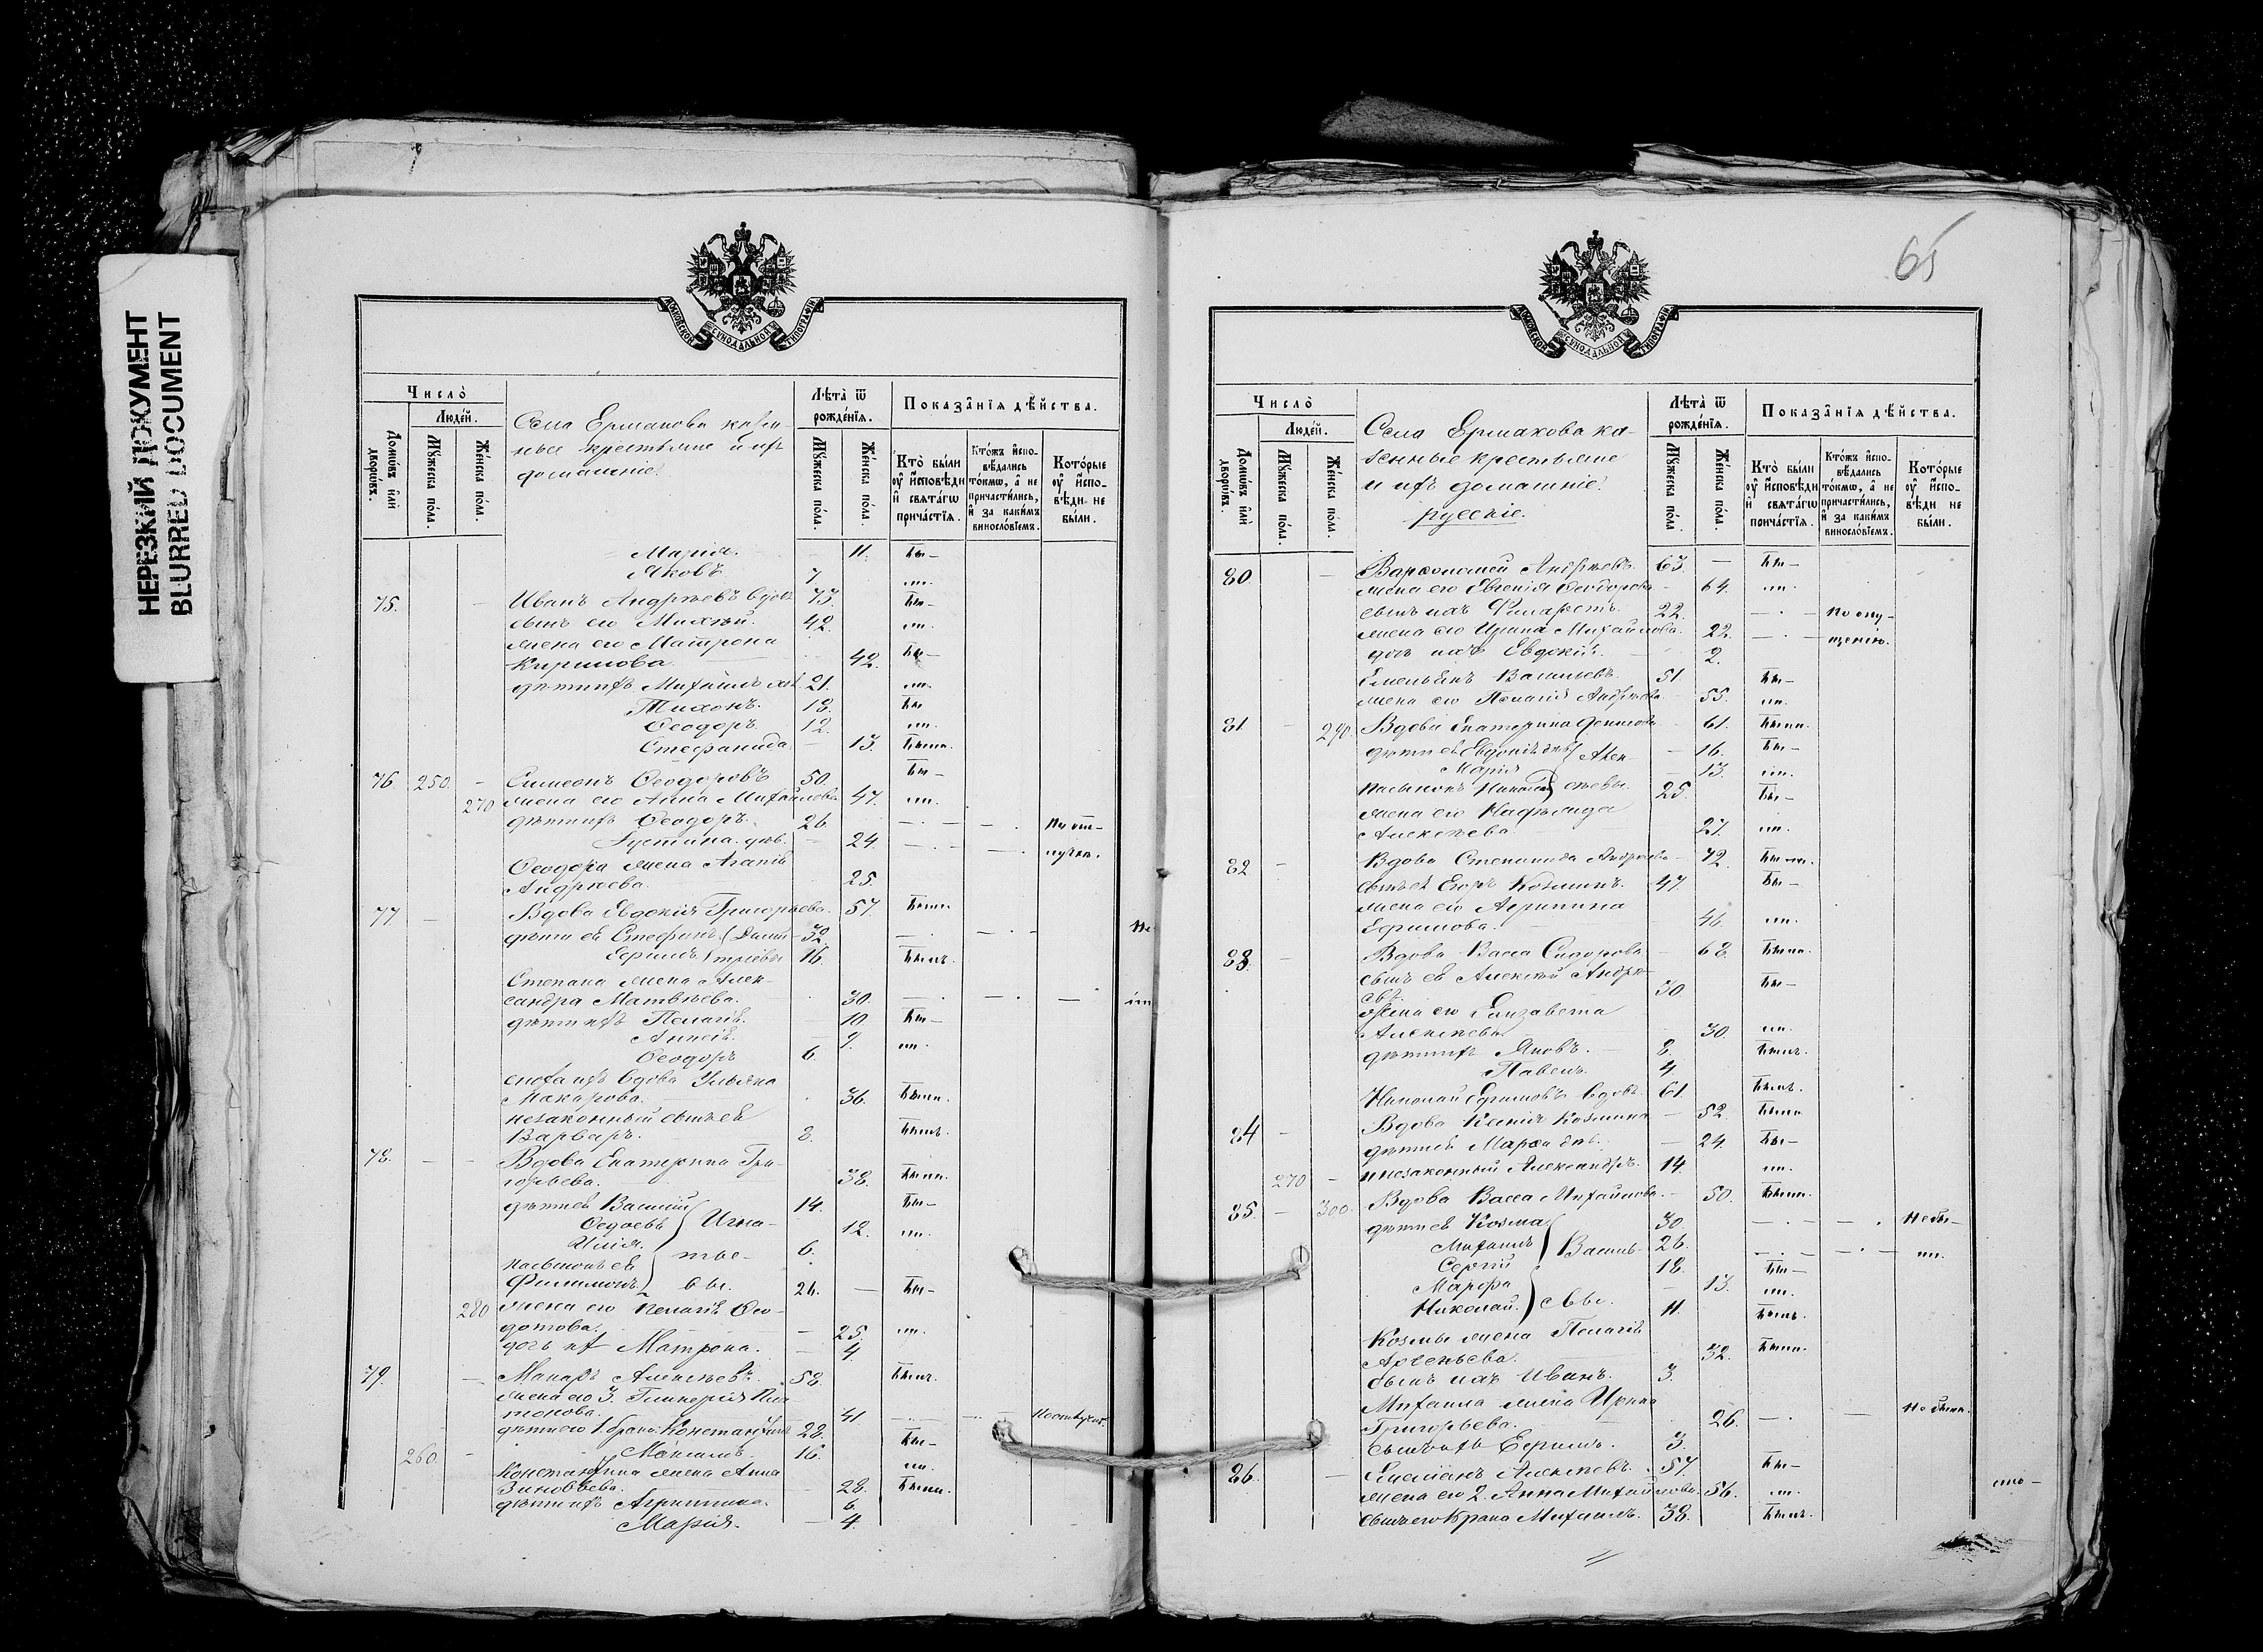 НЕРЕЗКИЙ ДОКУМЕНТ
BLURRED DOCUMENT
Число̀
Людей.
Домѡвъ и҆лѝ дворѡвъ.
Мꙋжеска по́ла.
Же́нска по́ла.
Села Ермакова казен-
ные крестьяне и ихъ
домашніе.
Лѣта̀ ѿ рожде́нїѧ.
Мꙋжеска по́ла.
Же́нска по́ла.
Показа̑нїѧ дѣ́йства.
Кто̀ бы́ли ᲂу҆ и҆сповѣди и҆ свѧта́гѡ прича́стїѧ.
Кто́жъ и҆спо-вѣдались то́кмѡ, а҆ не причасти́лись, и҆ за каки́мъ виносло́вїемъ.
Кото́рые ᲂу҆ и҆спо-вѣди не бы́ли.
Марія. 11. бы-
Яковъ 7. ли.
75. Иванъ Андреевъ вдов. 73. бы-
сынъ его Михей. 42. ли.
жена его Матрона
Кирилова 42. бы-
дѣти ихъ Михаилъ 21. ли.
Тихонъ. 18. бы
Ѳеодоръ 12. ли.
Стефанида 13. была.
76. 250. Симеонъ Ѳеодоровъ 50. бы-
270 жена его Анна Михайлова 47. ли.
дѣти ихъ Ѳеодоръ. 26. По от-
Іустина дѣв. 24. лучкѣ.
Ѳеодора жена Агапія
Андреева. 25.
77. Вдова Евдокія Григорьева. 57. была.
дѣти ея Стефанъ Дими- 32. Не
Ефимъ тріевы 16. былъ.
Степана жена Алек-
сандра Матвѣева. 30. ли
дѣти ихъ Пелагія. 10. бы-
Анисія. 9. ли.
Ѳеодоръ 6.
сноха ихъ вдова Ульяна
Макарова. 36. была.
незаконный сынъ ея
Варваръ. 8. былъ.
78. Вдова Екатерина Гри-
горьева. 38. была.
дѣти ея Василій 14. бы-
Ѳедосья Игна- 12. ли.
Илія. тье- 6.
пасынокъ ея
Филимонъ вы. 26. бы-
280 жена его Пелагія Ѳео-
дотова. 25. ли.
дочь их Матрона. 4.
79. Макаръ Алексѣевъ. 58. былъ.
жена его 3. Гликерія Пла-
тонова. 41 По отлуч.
дѣти его 1. брака Константинъ 28. бы-
260. 16. ли.
Константина жена Анна
Зиновьева. 28. была.
дѣти ихъ Агрипина. 6.
Марія. 4.
65
Число̀
Людей.
Домѡвъ и҆лѝ дворѡвъ.
Мꙋжеска по́ла.
Же́нска по́ла.
Села Ермакова ка-
зенные крестьяне
и ихъ домашніе.
русскіе.
Лѣта̀ ѿ рожде́нїѧ.
Мꙋжеска по́ла
Же́нска по́ла.
Показа̑нїѧ дѣ́йства.
Кто̀ бы́ли ᲂу҆ и҆сповѣди и҆ свѧта́гѡ прича́стїѧ.
Кто́жъ и҆спо-вѣдались то́кмѡ, а҆ не причасти́лись, и҆ за каки́мъ виносло́вїемъ.
Кото́рые ᲂу҆ и҆спо-вѣди не бы́ли.
80. Варѳоломей Андреевъ. 63. бы-
жена его Евгенія Ѳеодорова 64. ли.
сынъ ихъ Филаретъ. 22. По опу-
жена его Ирина Михайлова. 22. щенію.
дочь ихъ Евдокія. 2.
Емельянъ Васильевъ. 51 бы-
жена его Пелагія Андреева 55. ли.
81. 290. Вдова Екатерина Денисова 61. была.
дѣти ея Евдокія дѣв. Алек- 16. бы-
Марія 13. ли.
пасынокъ Николай сѣевы. 25. бы-
жена его Надежда
Алексѣева. 27. ли.
82 Вдова Степанида Андреева 72. была.
сынъ ея Егоръ Козминъ. 47. бы-
жена его Агрипина
Ефимова. 46. ли.
83. Вдова Васса Сидорова 68. была.
сынъ ея Алексѣй Андре-
евъ. 30. бы-
жена его Елизавета
Алексѣева 30. ли.
дѣти ихъ Яковъ. 8. былъ.
Павелъ. 4
Николай Ефимовъ вдовъ. 61. былъ.
84 Вдова Ксенія Козмина 52. была
дѣти ея Марѳа дѣв. 24. бы-
270 и незаконный Александръ. 14. ли.
85. 300. Вдова Васса Михайлова. 50. была.
дѣти ея Козма 30. Не бы-
Михаилъ Василь- 26. ли.
Сергій 18. бы-
Марѳа 13. ли.
Николай. евы. 11. былъ.
Козмы жена Пелагія
Арсеньева. 32. была.
сынъ ихъ Иванъ. 3.
Михаила жена Ирина
Григорьева. 26. Не была.
сынъ ихъ Ефимъ. 3.
86. Емеліанъ Алексѣевъ. 57. бы-
жена его 2. Анна Михайлова. 56. ли.
сынъ его 1 брака Михаилъ. 38. былъ.